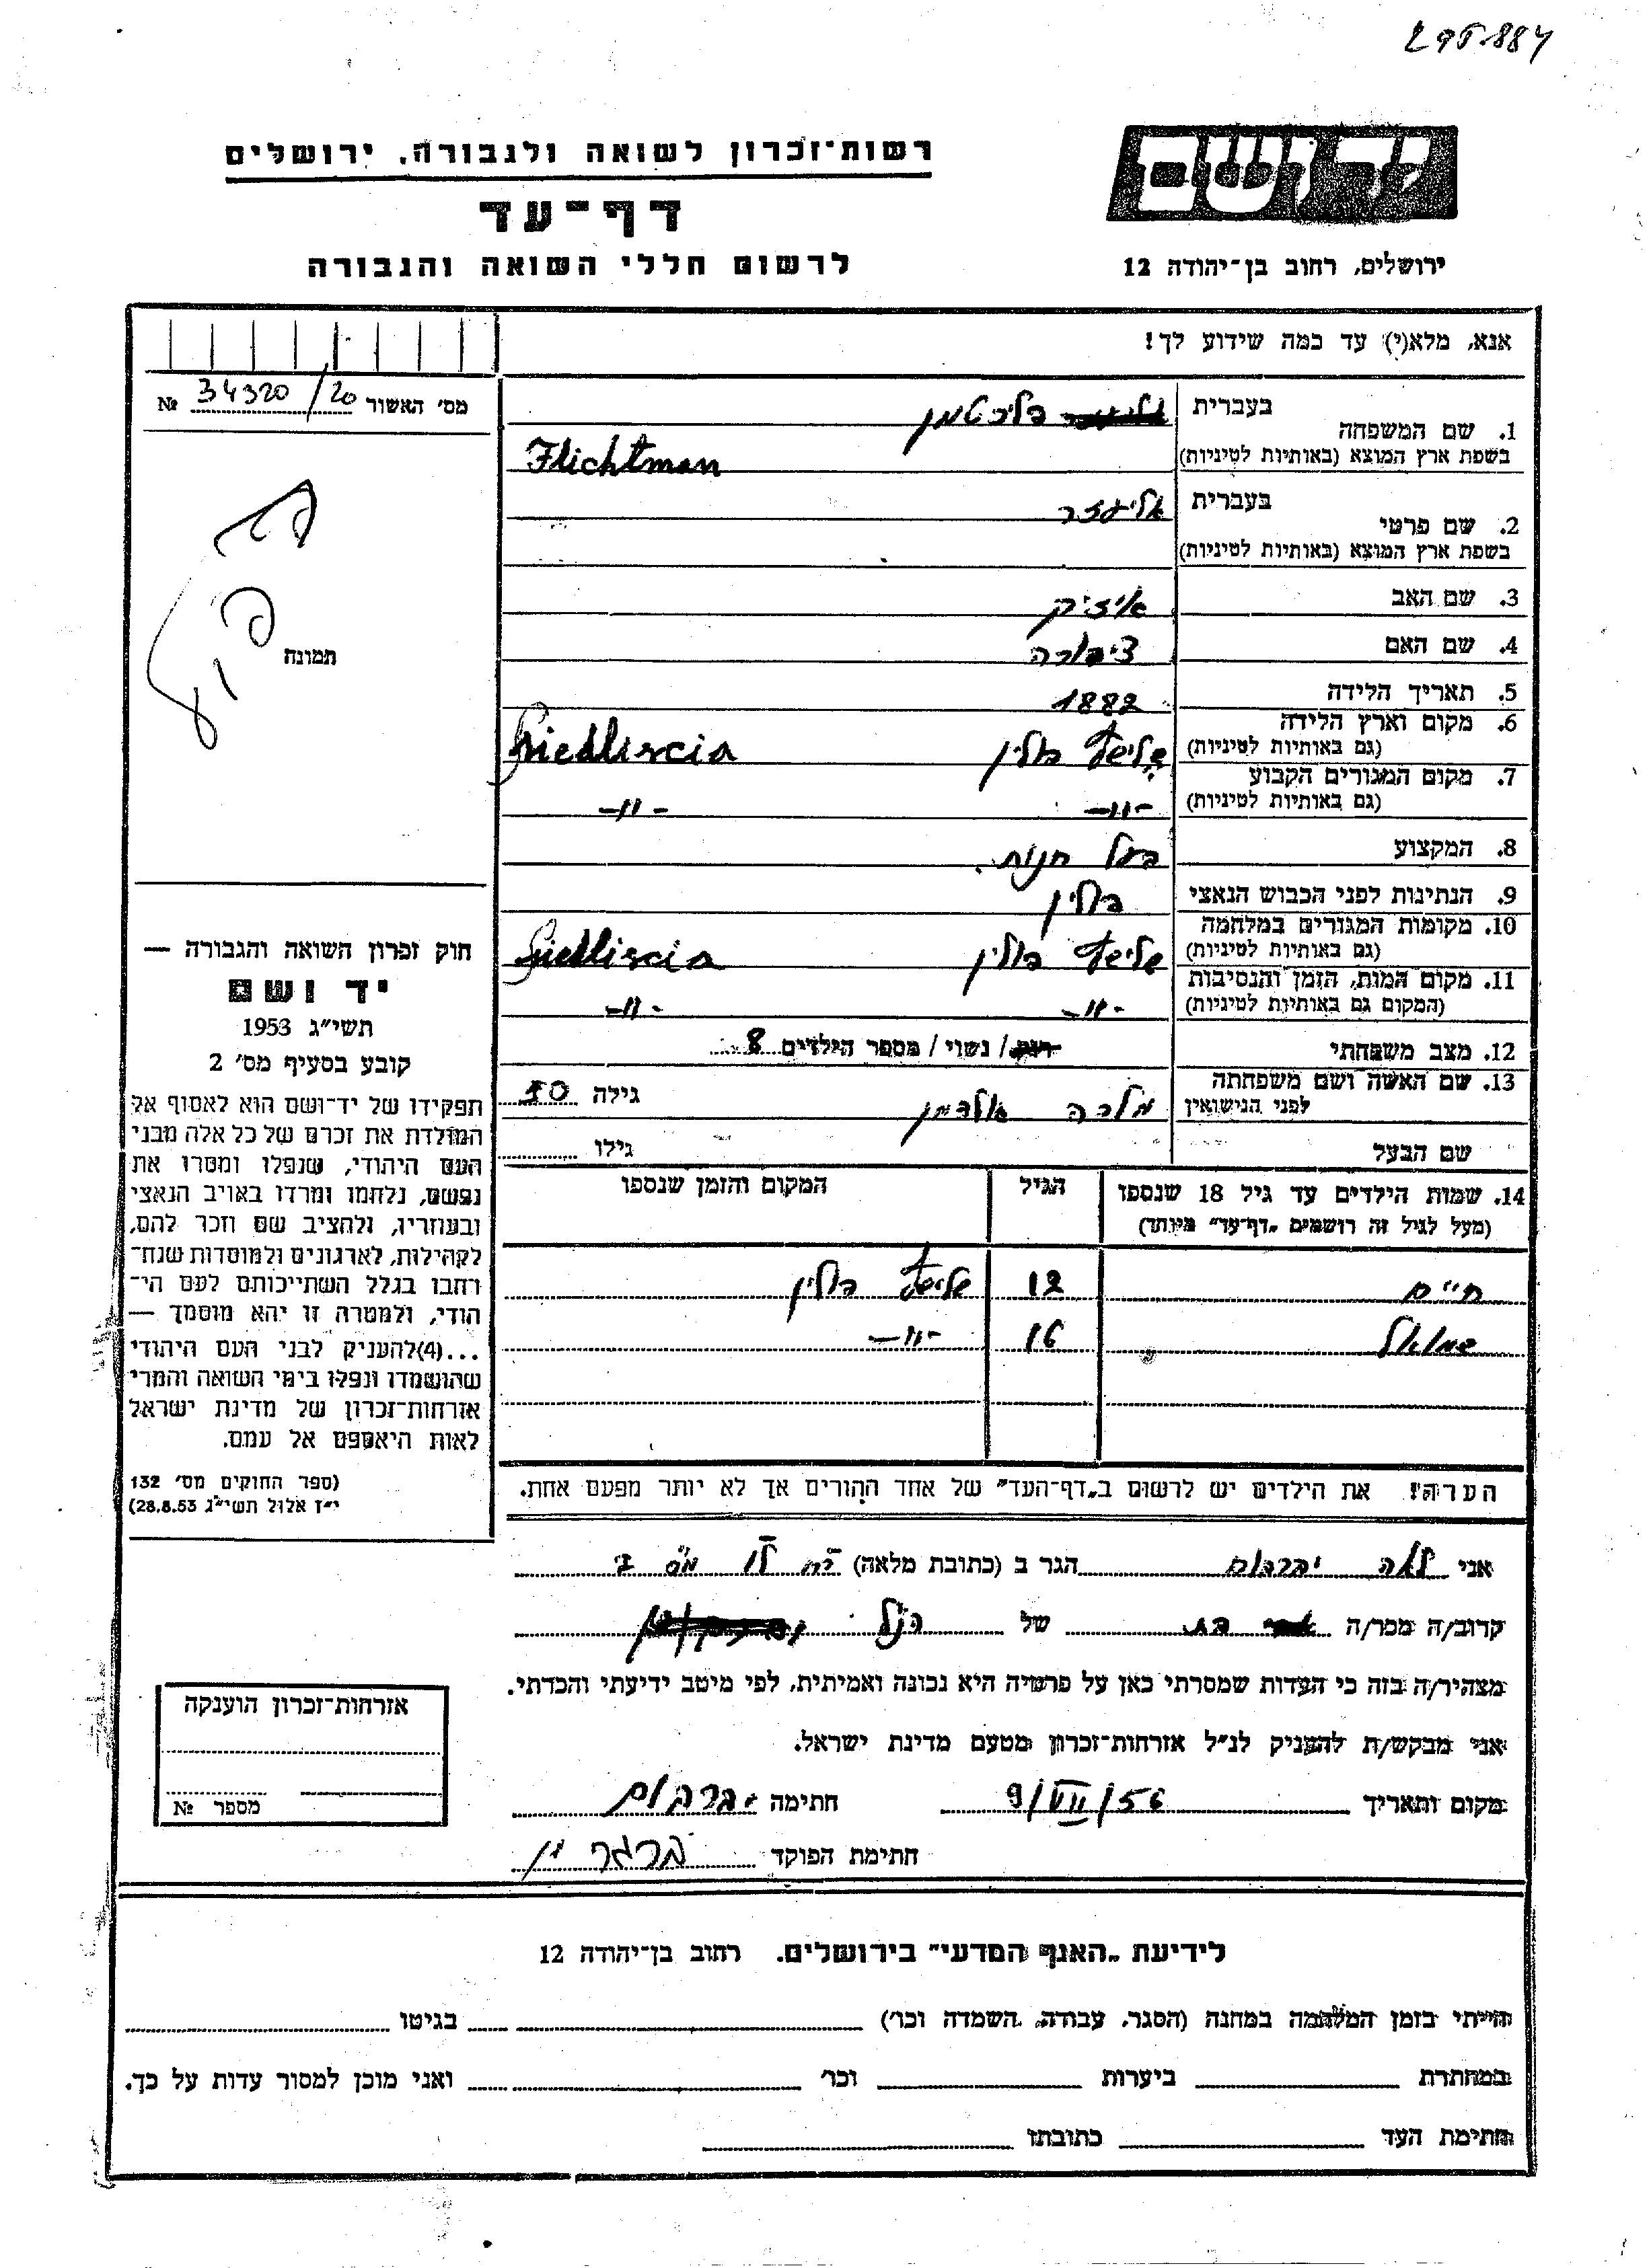 295884
רשות־זכרון לשואה ולגבורה, ירושלים
דף־עד
לרשום חללי השואה והגבורה
יד ושם
ירושלים, רחוב בן־יהודה 12
אנא, מלא(י) עד כמה שידוע לך!
מס׳ האשור № 34320/20
תמונה
1. שם המשפחה
בעברית פליכטמן
בשפת ארץ המוצא (באותיות לטיניות) Flichtman
2. שם פרטי
בעברית אליעזר
בשפת ארץ המוצא (באותיות לטיניות)
3. שם האב איזיק
4. שם האם ציפורה
5. תאריך הלידה 1882
6. מקום וארץ הלידה פולין
(גם באותיות לטיניות) Siedliscia
7. מקום המגורים הקבוע -"- -"-
(גם באותיות לטיניות)
8. המקצוע בעל חנות.
9. הנתינות לפני הכבוש הנאצי פולין
10. מקומות המגורים במלחמה פולין
(גם באותיות לטיניות) Siedliscia
11. מקום המות, הזמן והנסיבות -"- -"-
(המקום גם באותיות לטיניות)
12. מצב משפחתי רווק / נשוי / מספר הילדים 8
13. שם האשה ושם משפחתה מלכה גילה 50
לפני הנישואין
שם הבעל גילו
14. שמות הילדים עד גיל 18 שנספו הגיל המקום והזמן שנספו
(מעל לגיל זה רושמים „דף־עד" מיוחד)
חיים 12 פולין
שמואל 16 -"-
הערה! את הילדים יש לרשום ב„דף־העד" של אחד ההורים אך לא יותר מפעם אחת.
חוק זכרון השואה והגבורה —
יד ושם
תשי״ג 1953
קובע בסעיף מס׳ 2
תפקידו של יד־ושם הוא לאסוף אל
המולדת את זכרם של כל אלה מבני
העם היהודי, שנפלו ומסרו את
נפשם, נלחמו ומרדו באויב הנאצי
ובעוזריו, ולהציב שם וזכר להם,
לקהילות, לארגונים ולמוסדות שנח־
רבו בגלל השתייכותם לעם הי־
הודי, ולמטרה זו יהא מוסמך —
...(4)להעניק לבני העם היהודי
שהושמדו ונפלו בימי השואה והמרי
אזרחות־זכרון של מדינת ישראל
לאות היאספם אל עמם.
(ספר החוקים מס׳ 132
י״ז אלול תשי״ג 28.8.53)
אני לאה הגר ב (כתובת מלאה)
קרוב/ה מכר/ה בת של הנ״ל
מצהיר/ה בזה כי העדות שמסרתי כאן על פרטיה היא נכונה ואמיתית, לפי מיטב ידיעתי והכרתי.
אני מבקש/ת להעניק לנ״ל אזרחות־זכרון מטעם מדינת ישראל.
מקום ותאריך 9/VII/56 חתימה
חתימת הפוקד
אזרחות־זכרון הוענקה
מספר №
לידיעת „האגף המדעי" בירושלים. רחוב בן־יהודה 12
הייתי בזמן המלחמה במחנה (הסגר, עבודה, השמדה וכר׳) בגיטו
במחתרת ביערות וכר׳ ואני מוכן למסור עדות על כך.
חתימת העד כתובתו